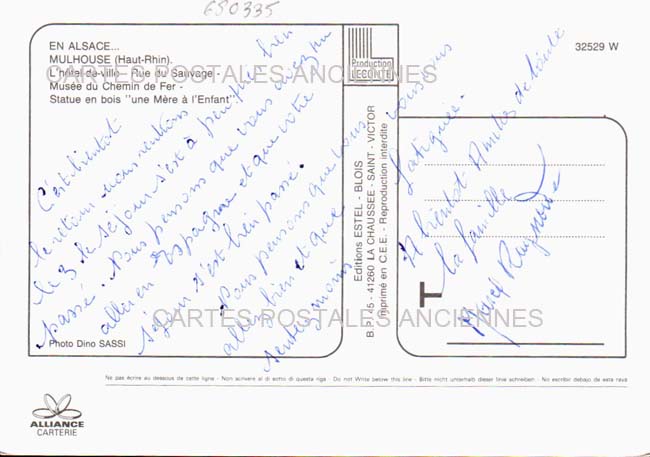 650335
EN ALSACE...
MULHOUSE (Haut-Rhin).
L'hôtel-de-ville - Rue du Sauvage -
Musée du Chemin de Fer -
Statue en bois "une Mère à l'Enfant"
Production
LECONTE
32529 W
CARTES POSTALES ANCIENNES
C'est bientôt
le retour. nous rentrons
le 3. le séjour s'est à peu près bien
passé. Nous pensons que vous avez pu
aller en Espagne et que votre
séjour s'est bien passé.
Nous pensons que vous
allez bien et que vous vous
sentez moins fatiguée.
A bientôt. Amitiés de toute
la famille
Raymonde
Editions ESTEL - BLOIS
B.P. 45 - 41260 LA CHAUSSÉE - SAINT - VICTOR
Imprimé en C.E.E. - Reproduction interdite
CARTES POSTALES ANCIENNES
Photo Dino SASSI
Ne pas écrire au dessous de cette ligne - Non scrivere al di sotto di questa riga - Do not Write below this line - Bitte nicht unterhalb dieser linie schreiben - No escribir debajo de esta raya
ALLIANCE
CARTERIE